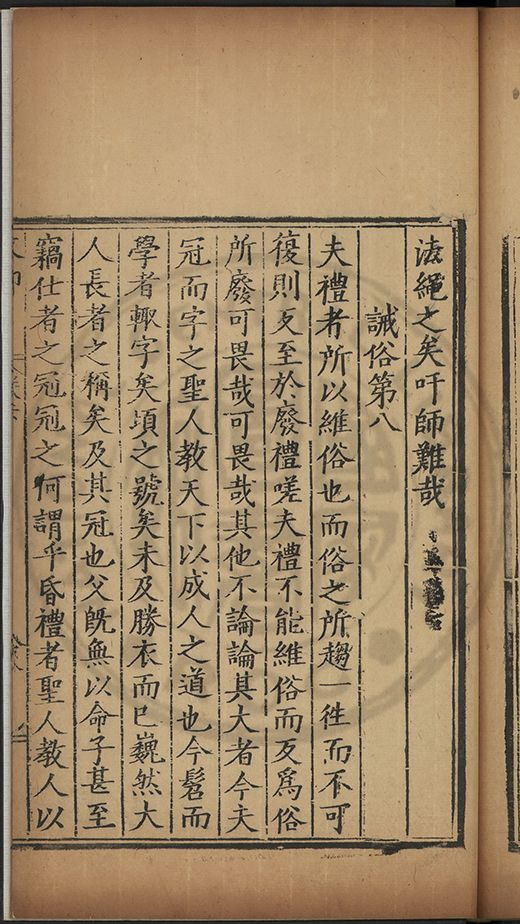 法繩之矣吁師難哉
誡俗第八
夫禮者所以維俗也而俗之所趨一徃而不可
復則反至於廢禮嗟夫禮不能維俗而反爲俗
所廢可畏哉可畏哉其他不論論其大者今夫
冠而字之聖人教天下以成人之道也今髫而
學者輙字矣頃之號矣未及勝衣而已巍然大
人長者之稱矣及其冠也父旣無以命子甚至
竊仕者之冠冠之何謂乎昏禮者聖人教人以